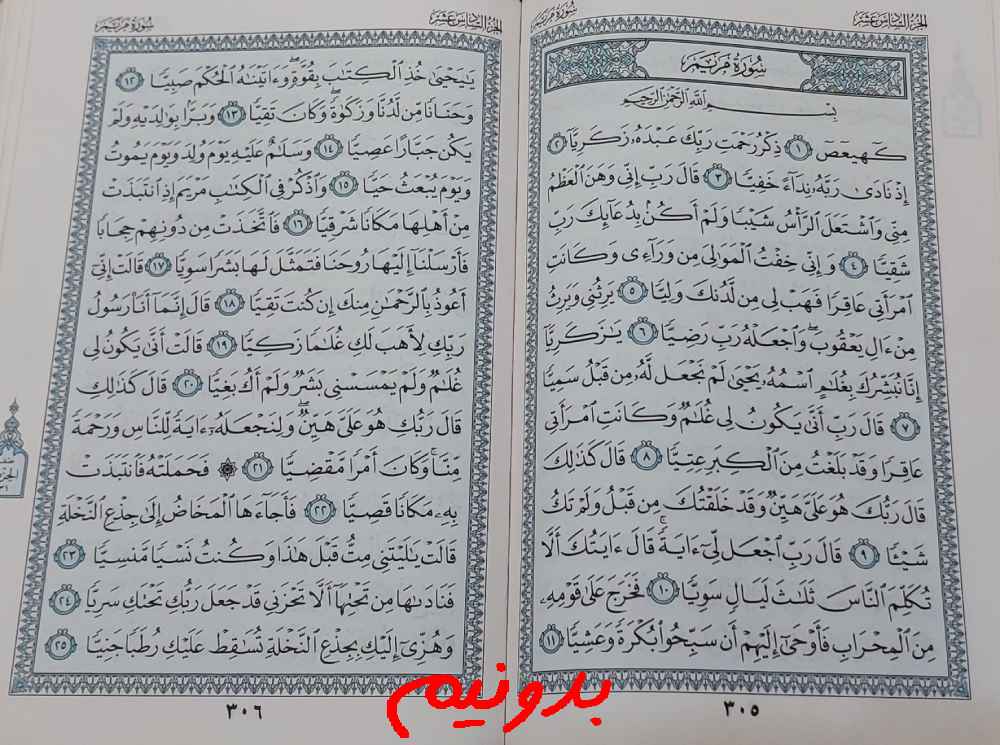 الجزء السادس عشر
سورة مريم
سورة مريم
بسم الله الرحمن الرحيم
كٓهيعٓصٓ ١ ذِكْرُ رَحْمَتِ رَبِّكَ عَبْدَهُۥ زَكَرِيَّآ ٢
إِذْ نَادَىٰ رَبَّهُۥ نِدَآءً خَفِيًّا ٣ قَالَ رَبِّ إِنِّى وَهَنَ ٱلْعَظْمُ
مِنِّى وَٱشْتَعَلَ ٱلرَّأْسُ شَيْبًا وَلَمْ أَكُنۢ بِدُعَآئِكَ رَبِّ
شَقِيًّا ٤ وَإِنِّى خِفْتُ ٱلْمَوَٰلِىَ مِن وَرَآءِى وَكَانَتِ
ٱمْرَأَتِى عَاقِرًا فَهَبْ لِى مِن لَّدُنكَ وَلِيًّا ٥ يَرِثُنِى وَيَرِثُ
مِنْ ءَالِ يَعْقُوبَ ۖ وَٱجْعَلْهُ رَبِّ رَضِيًّا ٦ يَٰزَكَرِيَّآ
إِنَّا نُبَشِّرُكَ بِغُلَٰمٍ ٱسْمُهُۥ يَحْيَىٰ لَمْ نَجْعَل لَّهُۥ مِن قَبْلُ سَمِيًّا
٧ قَالَ رَبِّ أَنَّىٰ يَكُونُ لِى غُلَٰمٌ وَكَانَتِ ٱمْرَأَتِى
عَاقِرًا وَقَدْ بَلَغْتُ مِنَ ٱلْكِبَرِ عِتِيًّا ٨ قَالَ كَذَٰلِكَ
قَالَ رَبُّكَ هُوَ عَلَىَّ هَيِّنٌ وَقَدْ خَلَقْتُكَ مِن قَبْلُ وَلَمْ تَكُ
شَيْـًٔا ٩ قَالَ رَبِّ ٱجْعَل لِّىٓ ءَايَةً ۚ قَالَ ءَايَتُكَ أَلَّا
تُكَلِّمَ ٱلنَّاسَ ثَلَٰثَ لَيَالٍ سَوِيًّا ١٠ فَخَرَجَ عَلَىٰ قَوْمِهِۦ
مِنَ ٱلْمِحْرَابِ فَأَوْحَىٰٓ إِلَيْهِمْ أَن سَبِّحُوا۟ بُكْرَةً وَعَشِيًّا ١١
٣٠٥
الجزء السادس عشر
سورة مريم
يَٰيَحْيَىٰ خُذِ ٱلْكِتَٰبَ بِقُوَّةٍ ۖ وَءَاتَيْنَٰهُ ٱلْحُكْمَ صَبِيًّا ١٢
وَحَنَانًا مِّن لَّدُنَّا وَزَكَوٰةً ۖ وَكَانَ تَقِيًّا ١٣ وَبَرًّۢا بِوَٰلِدَيْهِ وَلَمْ
يَكُن جَبَّارًا عَصِيًّا ١٤ وَسَلَٰمٌ عَلَيْهِ يَوْمَ وُلِدَ وَيَوْمَ يَمُوتُ
وَيَوْمَ يُبْعَثُ حَيًّا ١٥ وَٱذْكُرْ فِى ٱلْكِتَٰبِ مَرْيَمَ إِذِ ٱنتَبَذَتْ
مِنْ أَهْلِهَا مَكَانًا شَرْقِيًّا ١٦ فَٱتَّخَذَتْ مِن دُونِهِمْ حِجَابًا
فَأَرْسَلْنَآ إِلَيْهَا رُوحَنَا فَتَمَثَّلَ لَهَا بَشَرًا سَوِيًّا ١٧ قَالَتْ إِنِّىٓ
أَعُوذُ بِٱلرَّحْمَٰنِ مِنكَ إِن كُنتَ تَقِيًّا ١٨ قَالَ إِنَّمَآ أَنَا۠ رَسُولُ
رَبِّكِ لِأَهَبَ لَكِ غُلَٰمًا زَكِيًّا ١٩ قَالَتْ أَنَّىٰ يَكُونُ لِى
غُلَٰمٌ وَلَمْ يَمْسَسْنِى بَشَرٌ وَلَمْ أَكُ بَغِيًّا ٢٠ قَالَ كَذَٰلِكِ
قَالَ رَبُّكِ هُوَ عَلَىَّ هَيِّنٌ ۖ وَلِنَجْعَلَهُۥٓ ءَايَةً لِّلنَّاسِ وَرَحْمَةً
مِّنَّا ۚ وَكَانَ أَمْرًا مَّقْضِيًّا ٢١ ۞ فَحَمَلَتْهُ فَٱنتَبَذَتْ
بِهِۦ مَكَانًا قَصِيًّا ٢٢ فَأَجَآءَهَا ٱلْمَخَاضُ إِلَىٰ جِذْعِ ٱلنَّخْلَةِ
قَالَتْ يَٰلَيْتَنِى مِتُّ قَبْلَ هَٰذَا وَكُنتُ نَسْيًا مَّنسِيًّا ٢٣
فَنَادَىٰهَا مِن تَحْتِهَآ أَلَّا تَحْزَنِى قَدْ جَعَلَ رَبُّكِ تَحْتَكِ سَرِيًّا ٢٤
وَهُزِّىٓ إِلَيْكِ بِجِذْعِ ٱلنَّخْلَةِ تُسَٰقِطْ عَلَيْكِ رُطَبًا جَنِيًّا ٢٥
٣٠٦
بدونیم